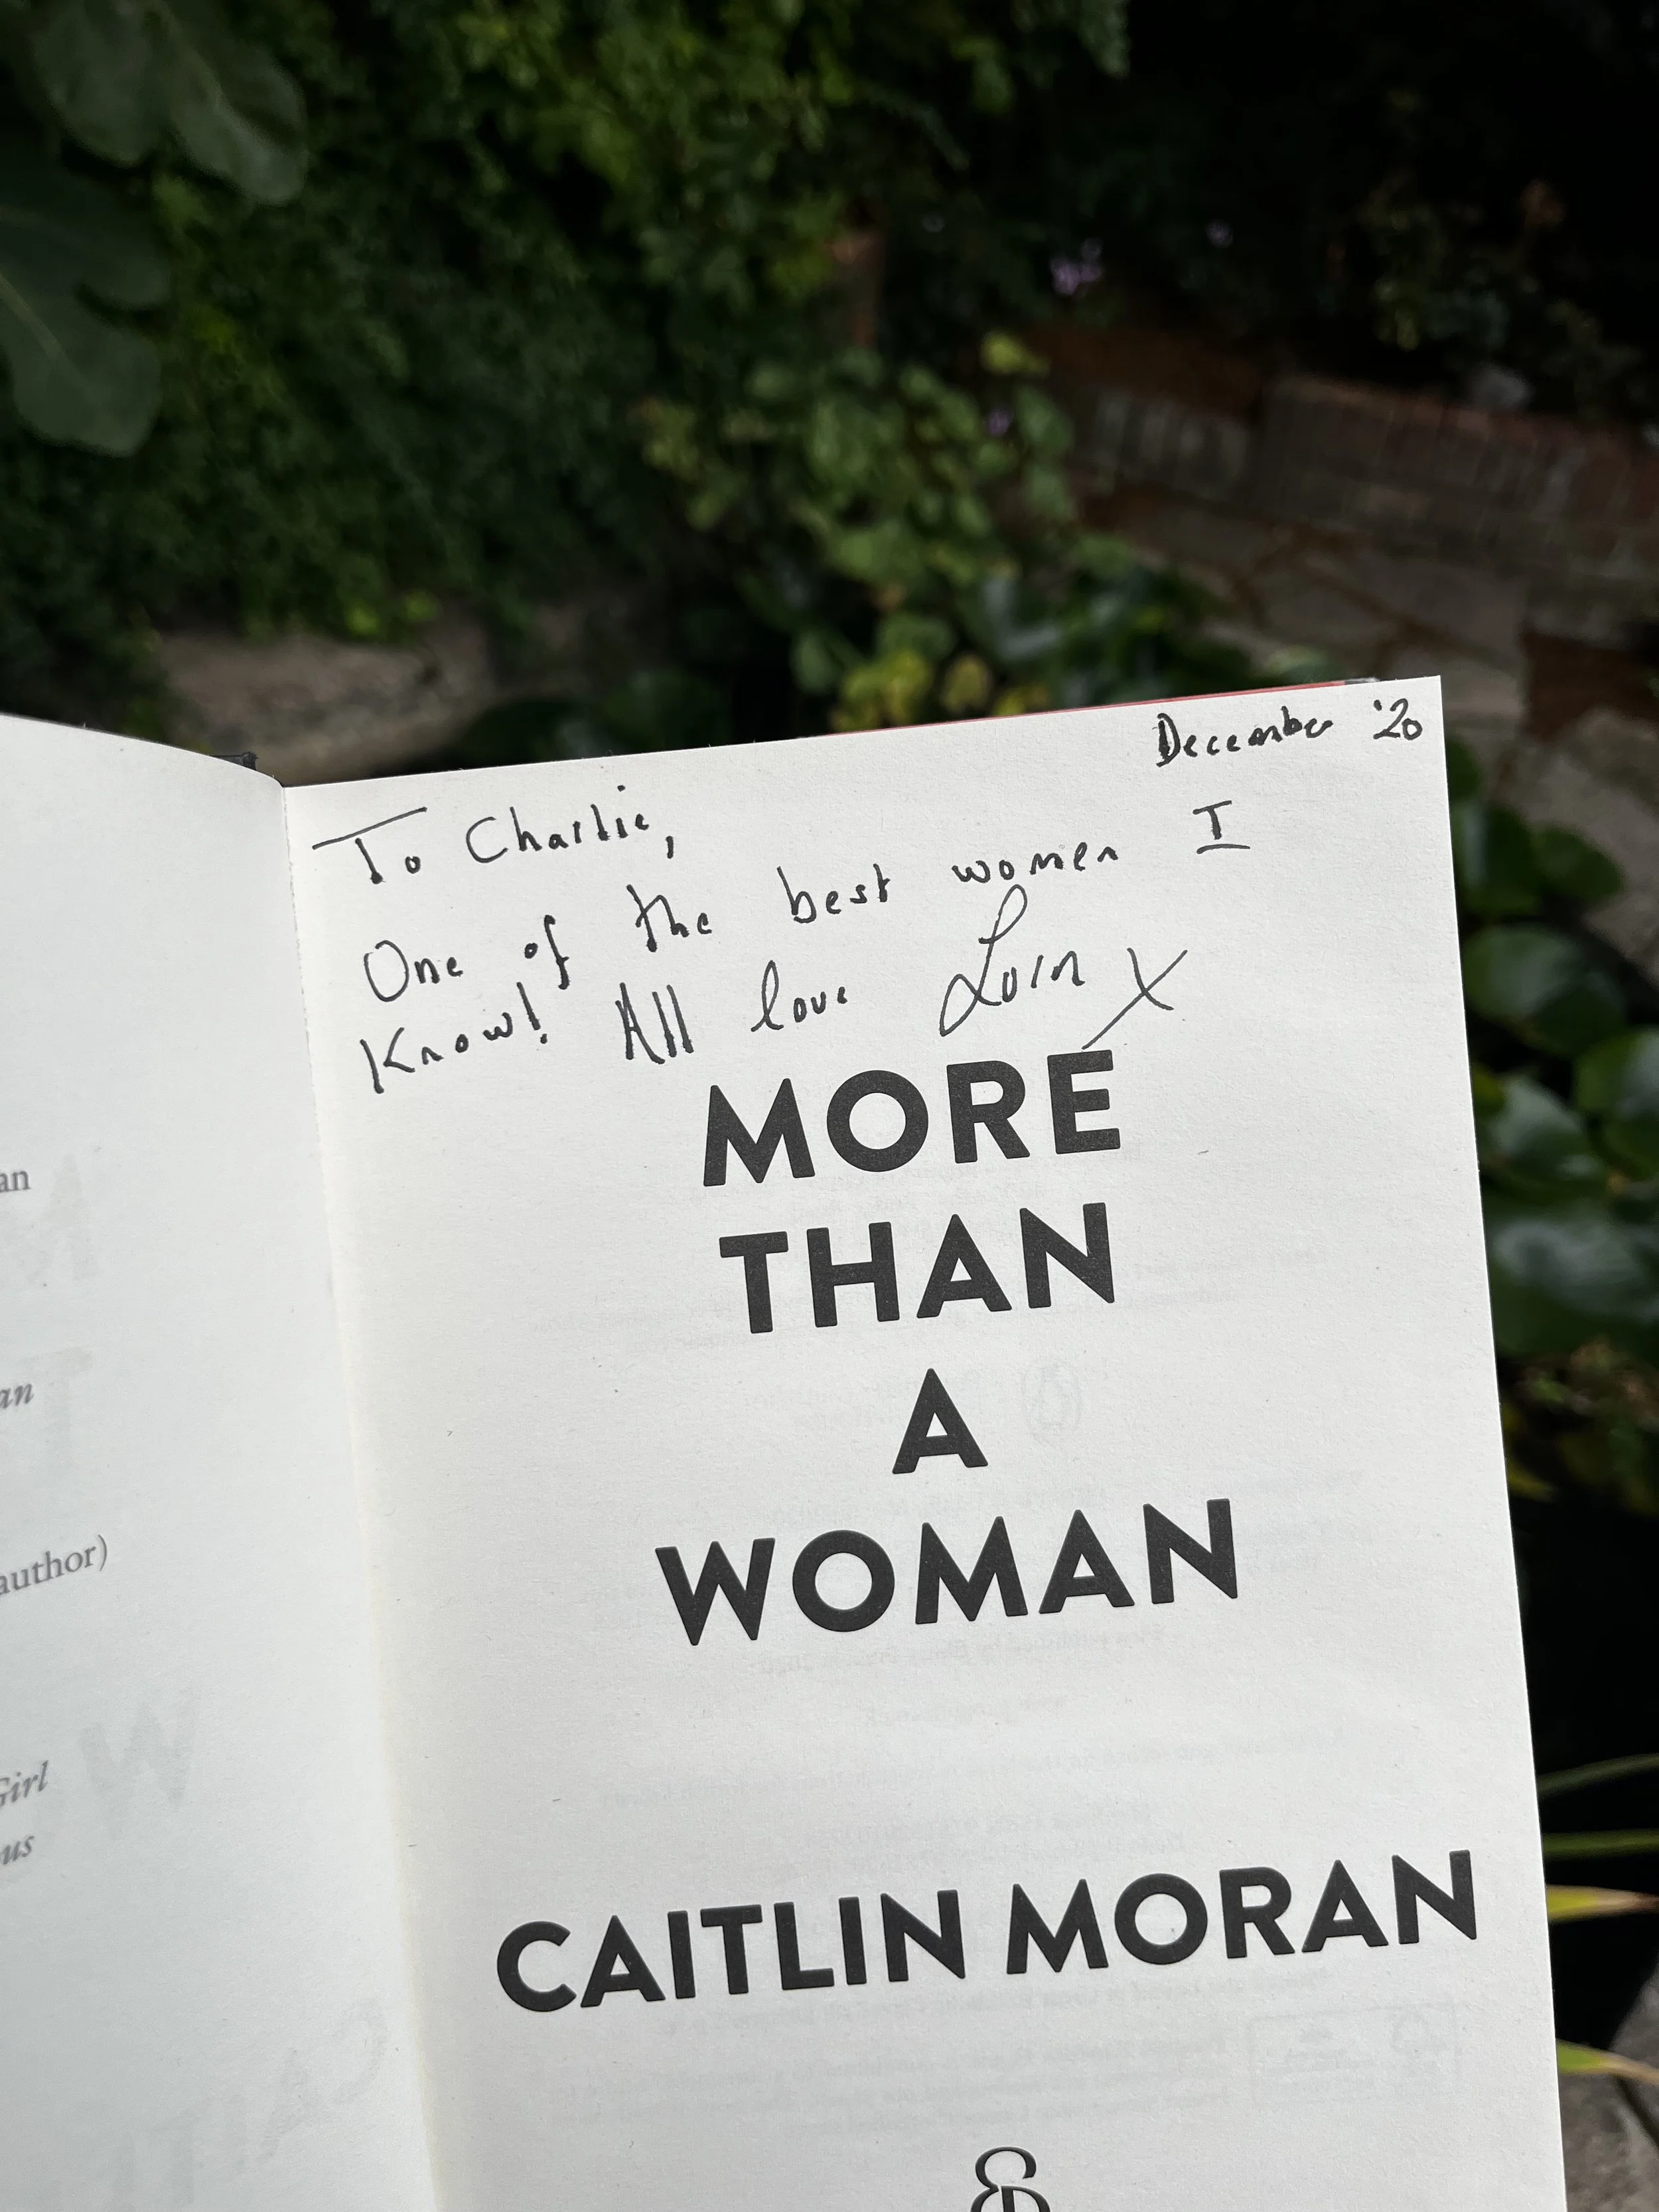 December '20
To Charlie,
One of the best women I
Know! All love X
MORE
THAN
A
WOMAN
CAITLIN MORAN
an
an
author)
Girl
ous